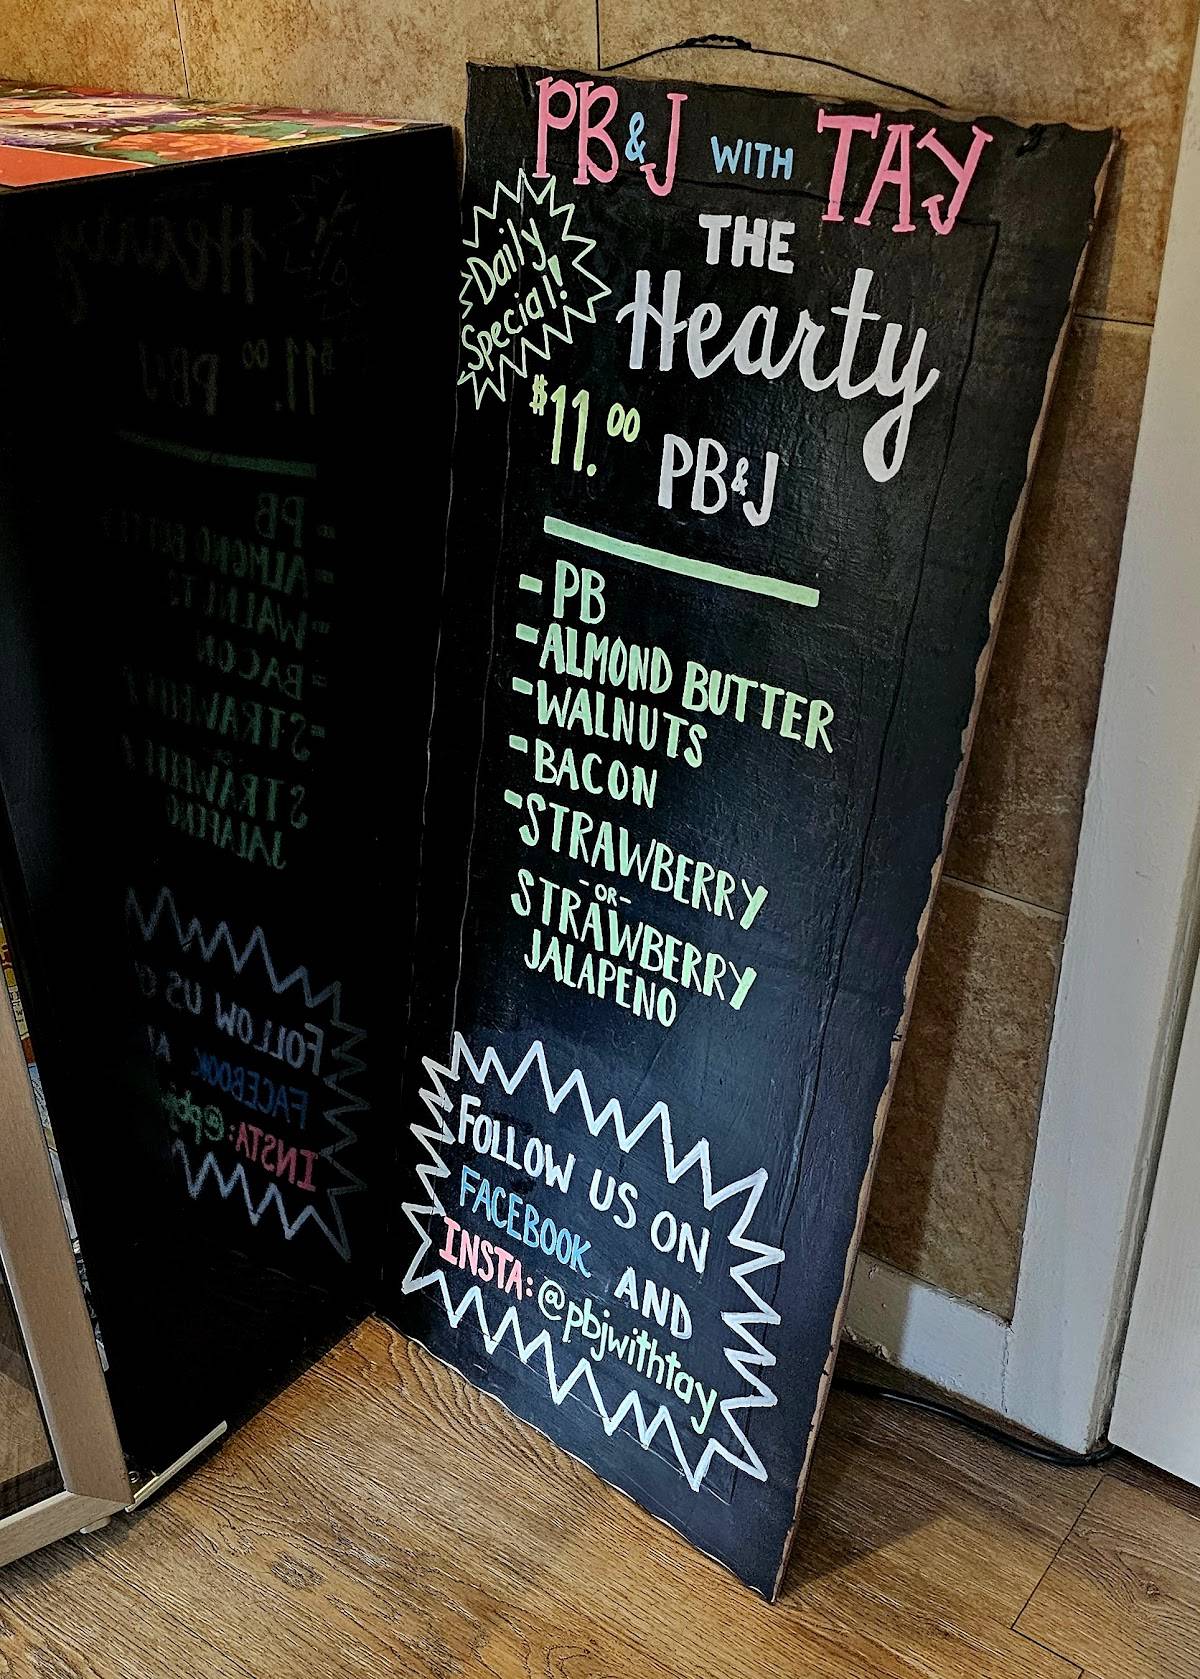 PB&J WITH TAY
Daily
Special!
THE
Hearty
$11.00 PB&J
- PB
- ALMOND BUTTER
- WALNUTS
- BACON
- STRAWBERRY
-OR-
STRAWBERRY
JALAPENO
FOLLOW US ON
FACEBOOK AND
INSTA: @pbjwithtay